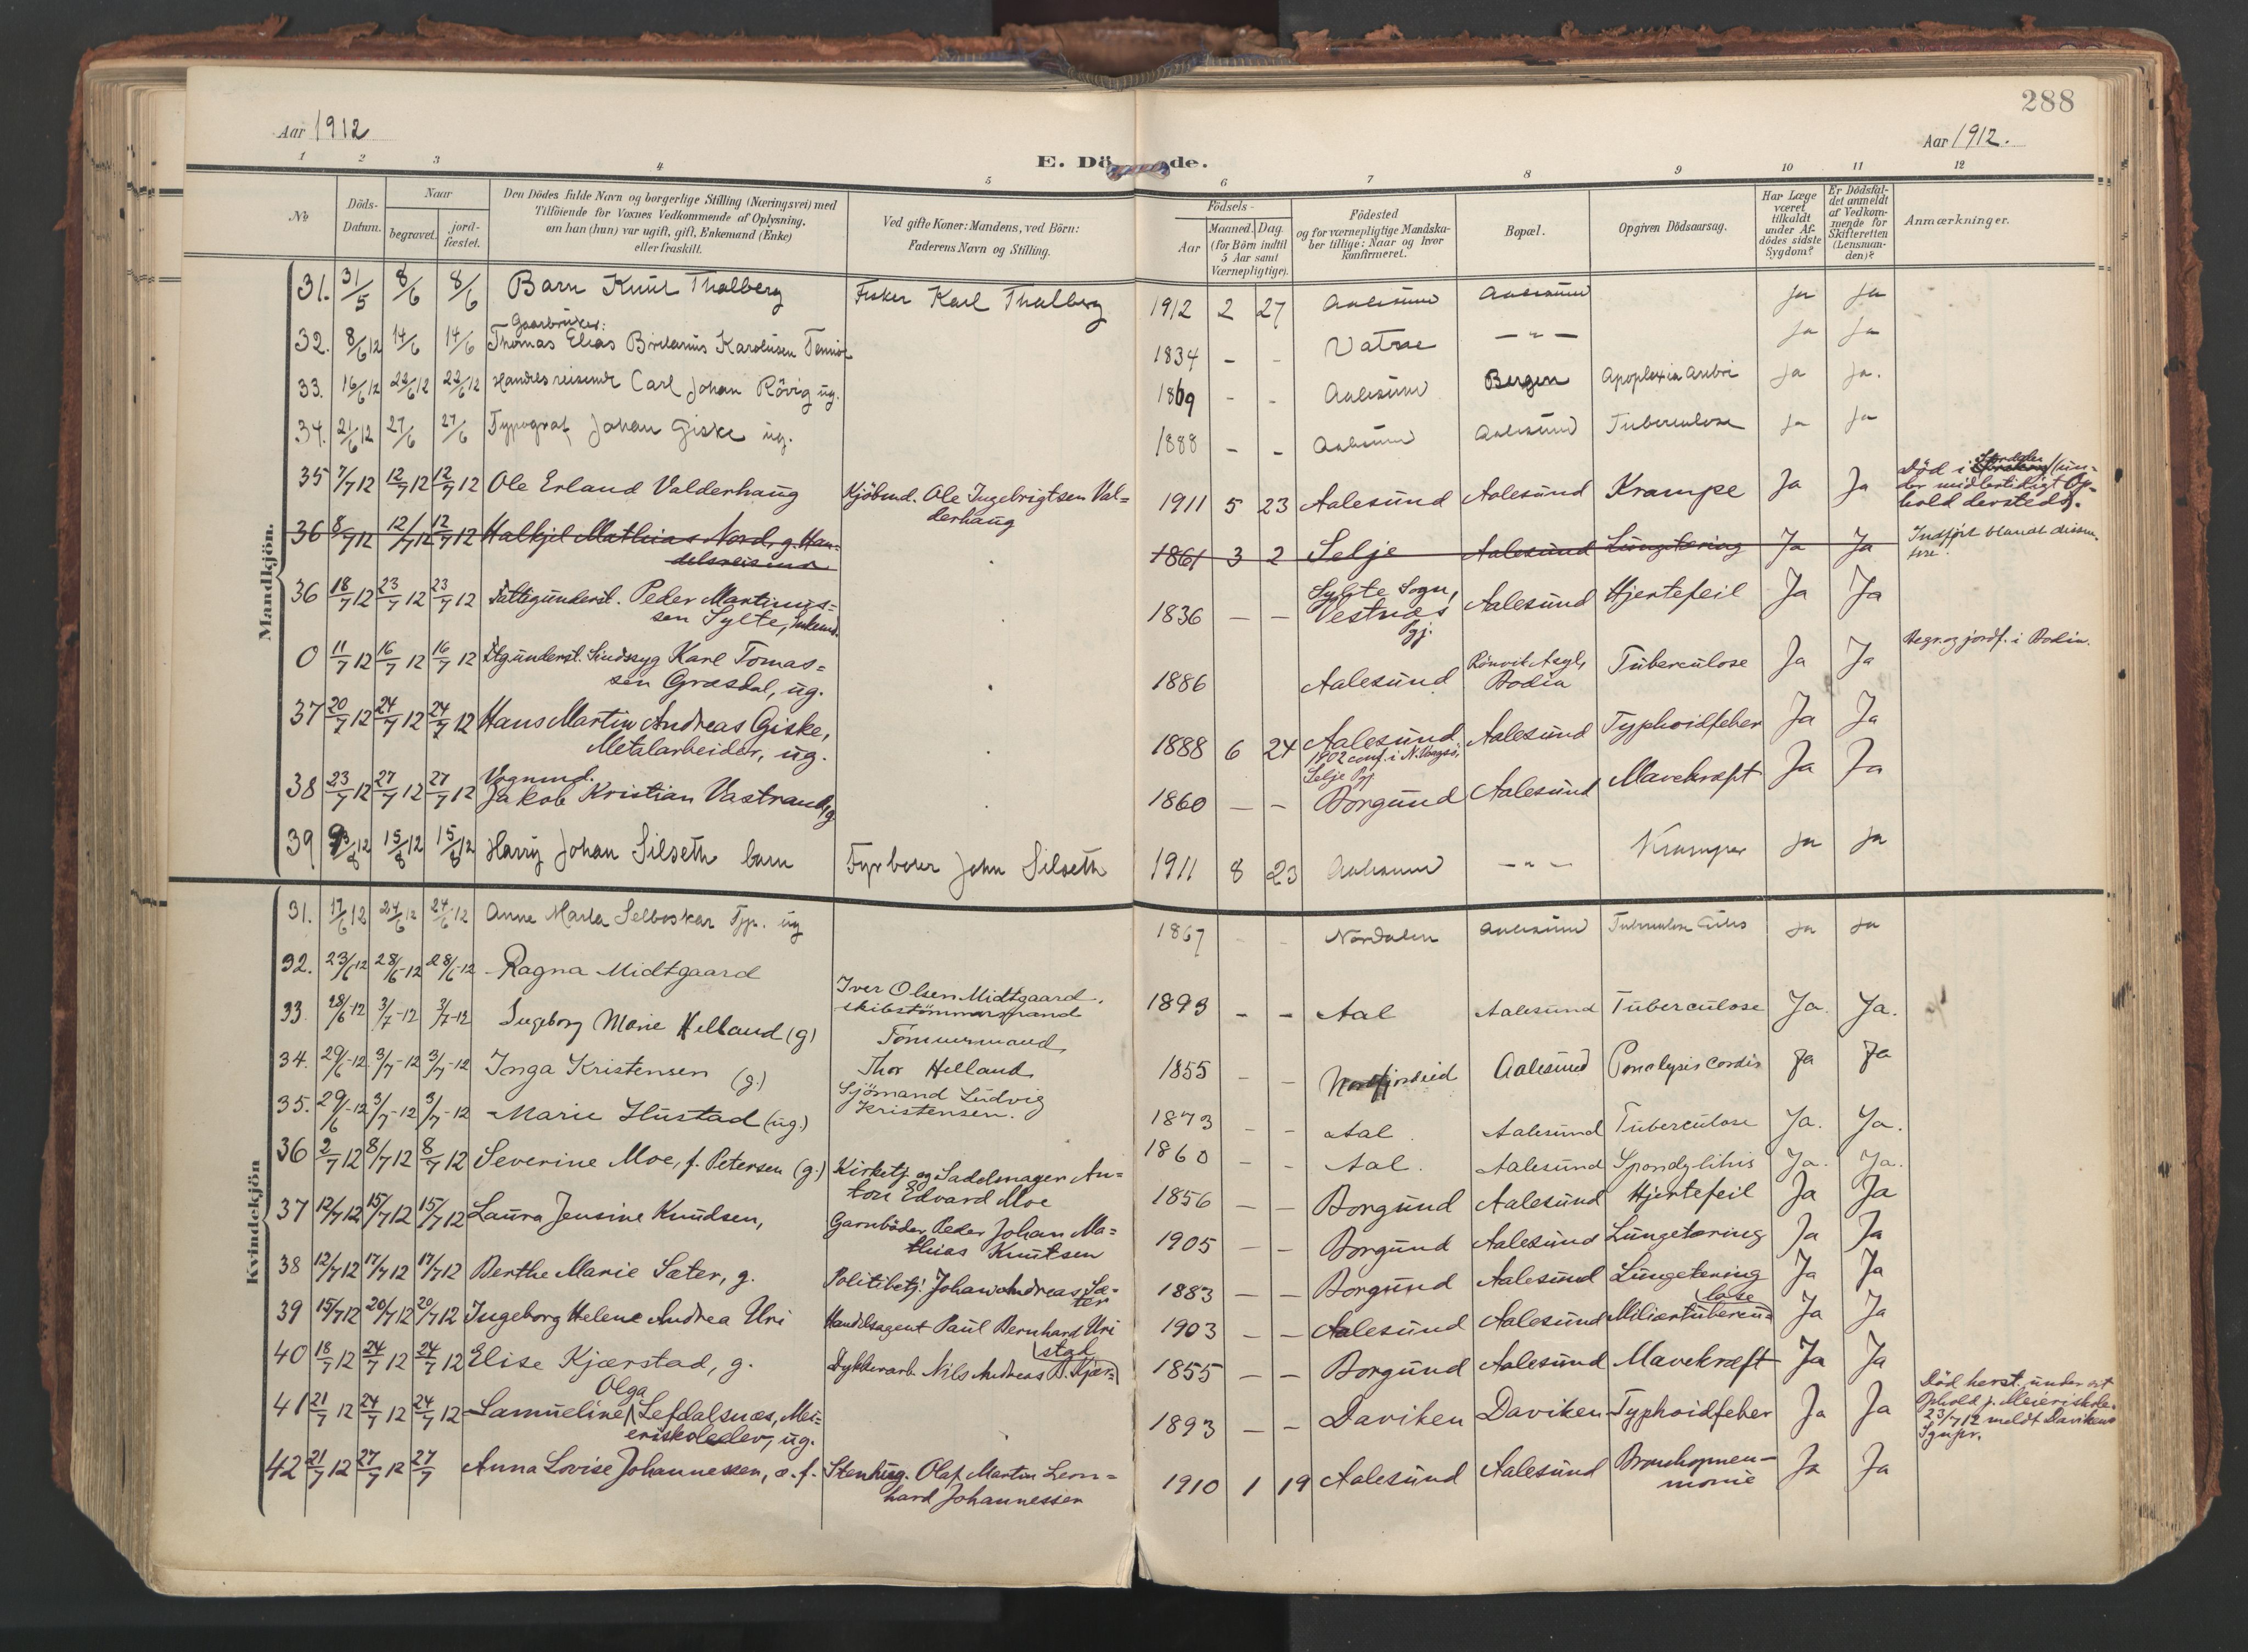 288
Aar 1912
Aar 1912.
E. Dö de.
1 2 3 4 5 6 7 8 9 10 11 12
No
Döds-
Datum.
Naar
begravet.
jord-
fæstet.
Den Dödes fulde Navn og borgerlige Stilling (Næringsvei) med
Tilföiende for Voxnes Vedkommende af Oplysning,
om han (hun) var ugift, gift, Enkemand (Enke)
eller fraskilt.
Ved gifte Koner: Mandens, ved Börn:
Faderens Navn og Stilling.
Födsels-
Aar
Maaned. Dag.
(for Börn indtil
5 Aar samt
Værnepligtige).
Födested
og for værnepligtige Mandska-
ber tillige: Naar og hvor
konfirmeret.
Bopæl.
Opgiven Dödsaarsag.
Har Læge
været
tilkaldt
under Af-
dödes sidste
Sygdom?
Er Dödsfal-
det anmeldt
af Vedkom-
mende for
Skifteretten
(Lensman-
den)?
Anmærkninger.
Mandkjön.
31. 31/5 8/6 8/6 Barn Knut Thalberg Fisker Karl Thalberg 1912 2 27 Aalesund Aalesund Ja Ja
Gaarbruker:
32. 8/6 12 14/6 14/6 Thomas Elias Karolusen 1834 - - Vatne — " — Ja Ja
33. 16/6 12 22/6 12 22/6 12 Handelsreisende Carl Johan Rövig ug. 1869 - - Aalesund Bergen Apoplexia Ja Ja.
34. 21/6 12 27/6 27/6 Typograf Johan Giske ug. 1888 - - Aalesund Aalesund Tuberculose Ja Ja
35 7/7 12 12/7 12 12/7 12 Ole Erland Valderhaug Kjöbmd. Ole Ingebrigtsen Val=
derhaug 1911 5 23 Aalesund Aalesund Krampe Ja Ja Död i (un-
der midlertidigt Op-
hold dersteds).
36 8/7 12 12/7 12 12/7 12 Halkjel Mathias Nord, g. Han-
delsreisende 1861 3 2 Selje Aalesund Lungetæring Ja Ja Indfört blandt dissen-
tere.
36 18/7 12 23/7 12 23/7 12 Fattigunderst. Peder Martinus=
sen Sylte, Enkemd. 1836 — — Sylte Sogn,
Vestnæs
Pgj. Aalesund Hjertefeil Ja Ja
0 11/7 12 16/7 12 16/7 12 Ftgunderst. Sindssyg Karl Tomas=
sen Græsdal, ug. 1886 Aalesund Rönvik Asyl,
Bodin Tuberculose Ja Ja Begr. og jordf. i Bodin.
37 20/7 12 24/7 12 24/7 12 Hans Martin Andreas Giske,
Metalarbeider, ug. 1888 6 24 Aalesund
1902 conf. i N. Vaagsö,
Selje Pgj Aalesund Typhoidfeber Ja Ja
Vognmd.
38 23/7 12 27/7 12 27/7 12 Jakob Kristian Vastrand, g 1860 — — Borgund Aalesund Mavekræft Ja Ja
39 /8 12 15/8 12 15/8 12 Harry Johan Silseth barn Fyrböter John Silseth 1911 8 23 Aalesund — " — Krampe Ja Ja
Kvindekjön
31. 17/6 12 24/6 12 24/6 12 Anne Marta Selboskar Tjp. ug 1867 - - Nordalen Aalesund Ja Ja
32. 23/6 12 28/6-12 28/6-12 Ragna Midtgaard Iver Olsen Midtgaard.
skibstömmermand 1893 - - Aal Aalesund Tuberculose Ja. Ja.
33. 28/6-12 3/7-12 3/7-12 Ingeborg Marie Helland (g) Tömmermand
Thor Helland 1855 - - Nordfjordeid Aalesund Paralysis Cordis Ja Ja
34. 29/6-12 3/7-12 3/7-12 Inga Kristensen (g.) Sjömand Ludvig
Kristensen. 1873 - - Aal. Aalesund Tuberculose Ja. Ja.
35. 29/6-12 3/7-12 3/7-12 Marie Hustad (ug.) 1860 - - Aal. Aalesund Spondylitis Ja. Ja.
36 2/7 12 8/7 12 8/7 12 Severine Moe, f. Petersen (g.) Kirketj. og Sadelmager An=
ton Edvard Moe 1856 — — Borgund Aalesund Hjertefeil Ja Ja
37 12/7 12 15/7 12 15/7 12 Laura Jensine Knudsen, Garnböder Peder Johan Ma=
thias Knutsen 1905 — — Borgund Aalesund Lungetæring Ja Ja
38 12/7 12 17/7 12 17/7 12 Berthe Marie Sæter, g. Politibetj. Johan Andreas Sæ-
ter 1883 — — Borgund Aalesund Lungetæring Ja Ja
39 15/7 12 20/7 12 20/7 12 Ingeborg Helene Andrea Uri Handelsagent Paul Bernhard Uri 1903 — — Aalesund Aalesund Miliærtubercu=
lose Ja Ja
40 18/7 12 24/7 12 24/7 12 Elise Kjærstad, g. Dykkerarb. Nils Andreas B. Kjær=
stad 1855 — — Borgund Aalesund Mavekræft Ja Ja
41 21/7 12 24/7 12 24/7 12 Samueline Olga Lefdalsnæs, Mei=
eriskoleelev, ug. 1893 — — Daviken Daviken Typhoidfeber Ja Ja Död herst. under et
Ophold p. Meieriskole.
23/7 12 meldt Davikens
Sgnpr.
42 21/7 12 27/7 12 27/7 Anna Lovise Johannessen, æ. f. Stenhug. Olaf Martin Leon=
hard Johannessen 1910 1 19 Aalesund Aalesund Bronchopneu-
monie Ja Ja